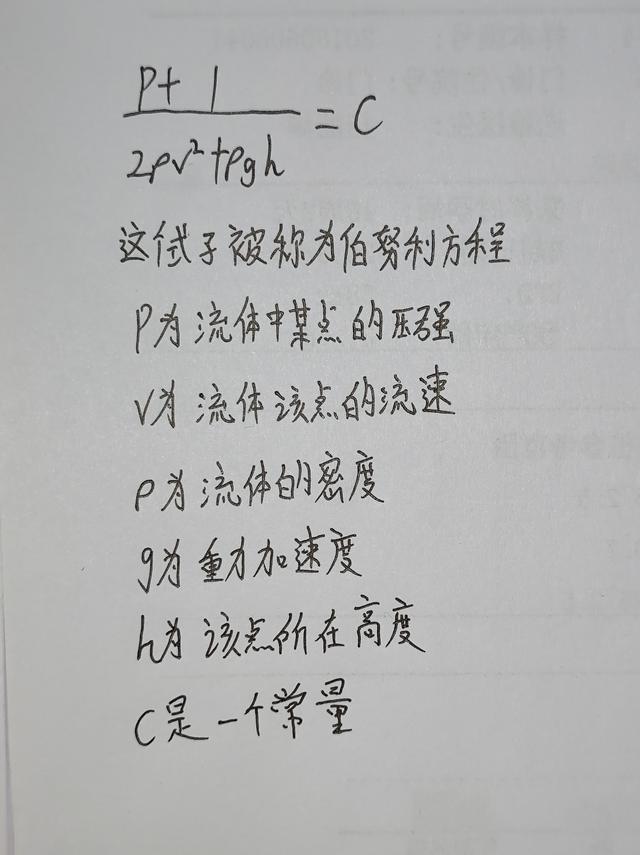 p+ 1
= C
2ρv²+ρgh
这式子被称为伯努利方程
p为流体中某点的压强
v为流体该点的流速
ρ为流体的密度
g为重力加速度
h为该点所在高度
C是一个常量